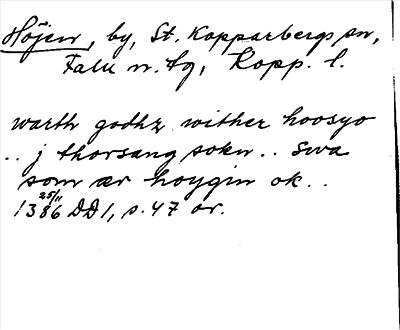 Höjen, by, St. Kopparbergs sn,
Falu n. tg, Kopp. l.
warth godhz wither hoosyo
.. j thorsang sokn .. swa
som ær hoygin ok ..
1386 25/11 DD 1, s. 47 or.